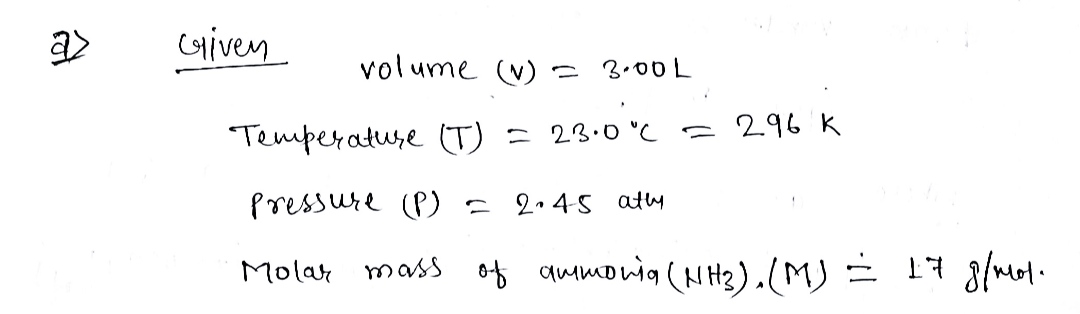 a> Given
volume (V) = 3.00 L
Temperature (T) = 23.0 °C = 296 K
Pressure (P) = 2.45 atm
Molar mass of ammonia (NH3).(M) = 17 g/mol.